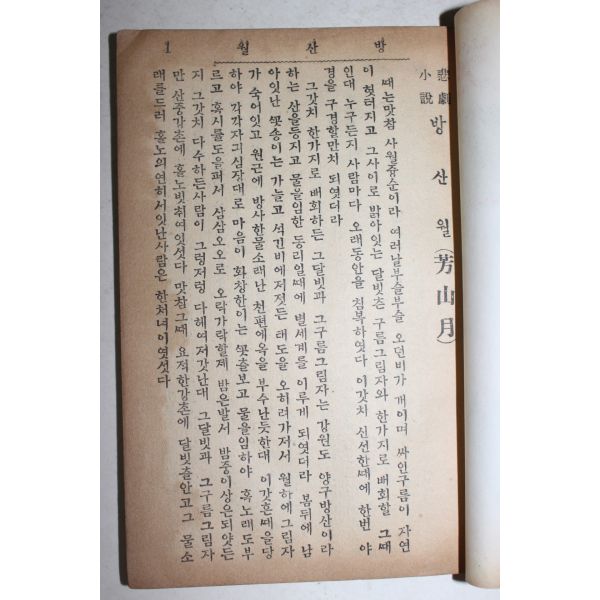 1 월 산 방
悲劇
小說
방 산 월 (芳山月)
때는맛참 사월즁순이라 여러날부슬부슬 오던비가 개이며 싸인구름이 자연
이 헛터지고 그사이로 밝아잇는 달빗츤 구름그림자와 한가지로 배회할 그때
인대 누구든지 사람마다 오래동안을 침복하엿다 이갓치 신선한때에 한번 야
경을 구경할만치 되엿더라
그갓치 한가지로 배회하든 그달빗과 그구름그림자는 강원도 양구방산이라
하는 산을등지고 물을임한 동리일때에 별세계를 이루게 되엿더라 봄뒤에 남
아잇난 꼿송이는 가늘고 석긴비에저젓든 태도을 오히려가저서 월하에그림자
가 숙어잇고 원근에 방사한물소래난 천편에옥을 부수난듯한대 이갓흔때을당
하야 각각자긔심장대로 마음이 화창한이는 꼿츨보고 물을임하야 혹노래도부
르고 혹시률도을펴서 삼삼오오로 오락가락할제 밤은발서 밤중이상은되얏든
지 그갓치 다수하든사람이 그렁저렁 다헤여저갓난대 그달빗과 그구름그림자
만 산중강촌에 홀노빗취여잇섯다 맛참그때 요적한강촌에 달빗츨안고그 물소
래를드러 홀노의연히서잇난사람은 한처녀이엿섯다